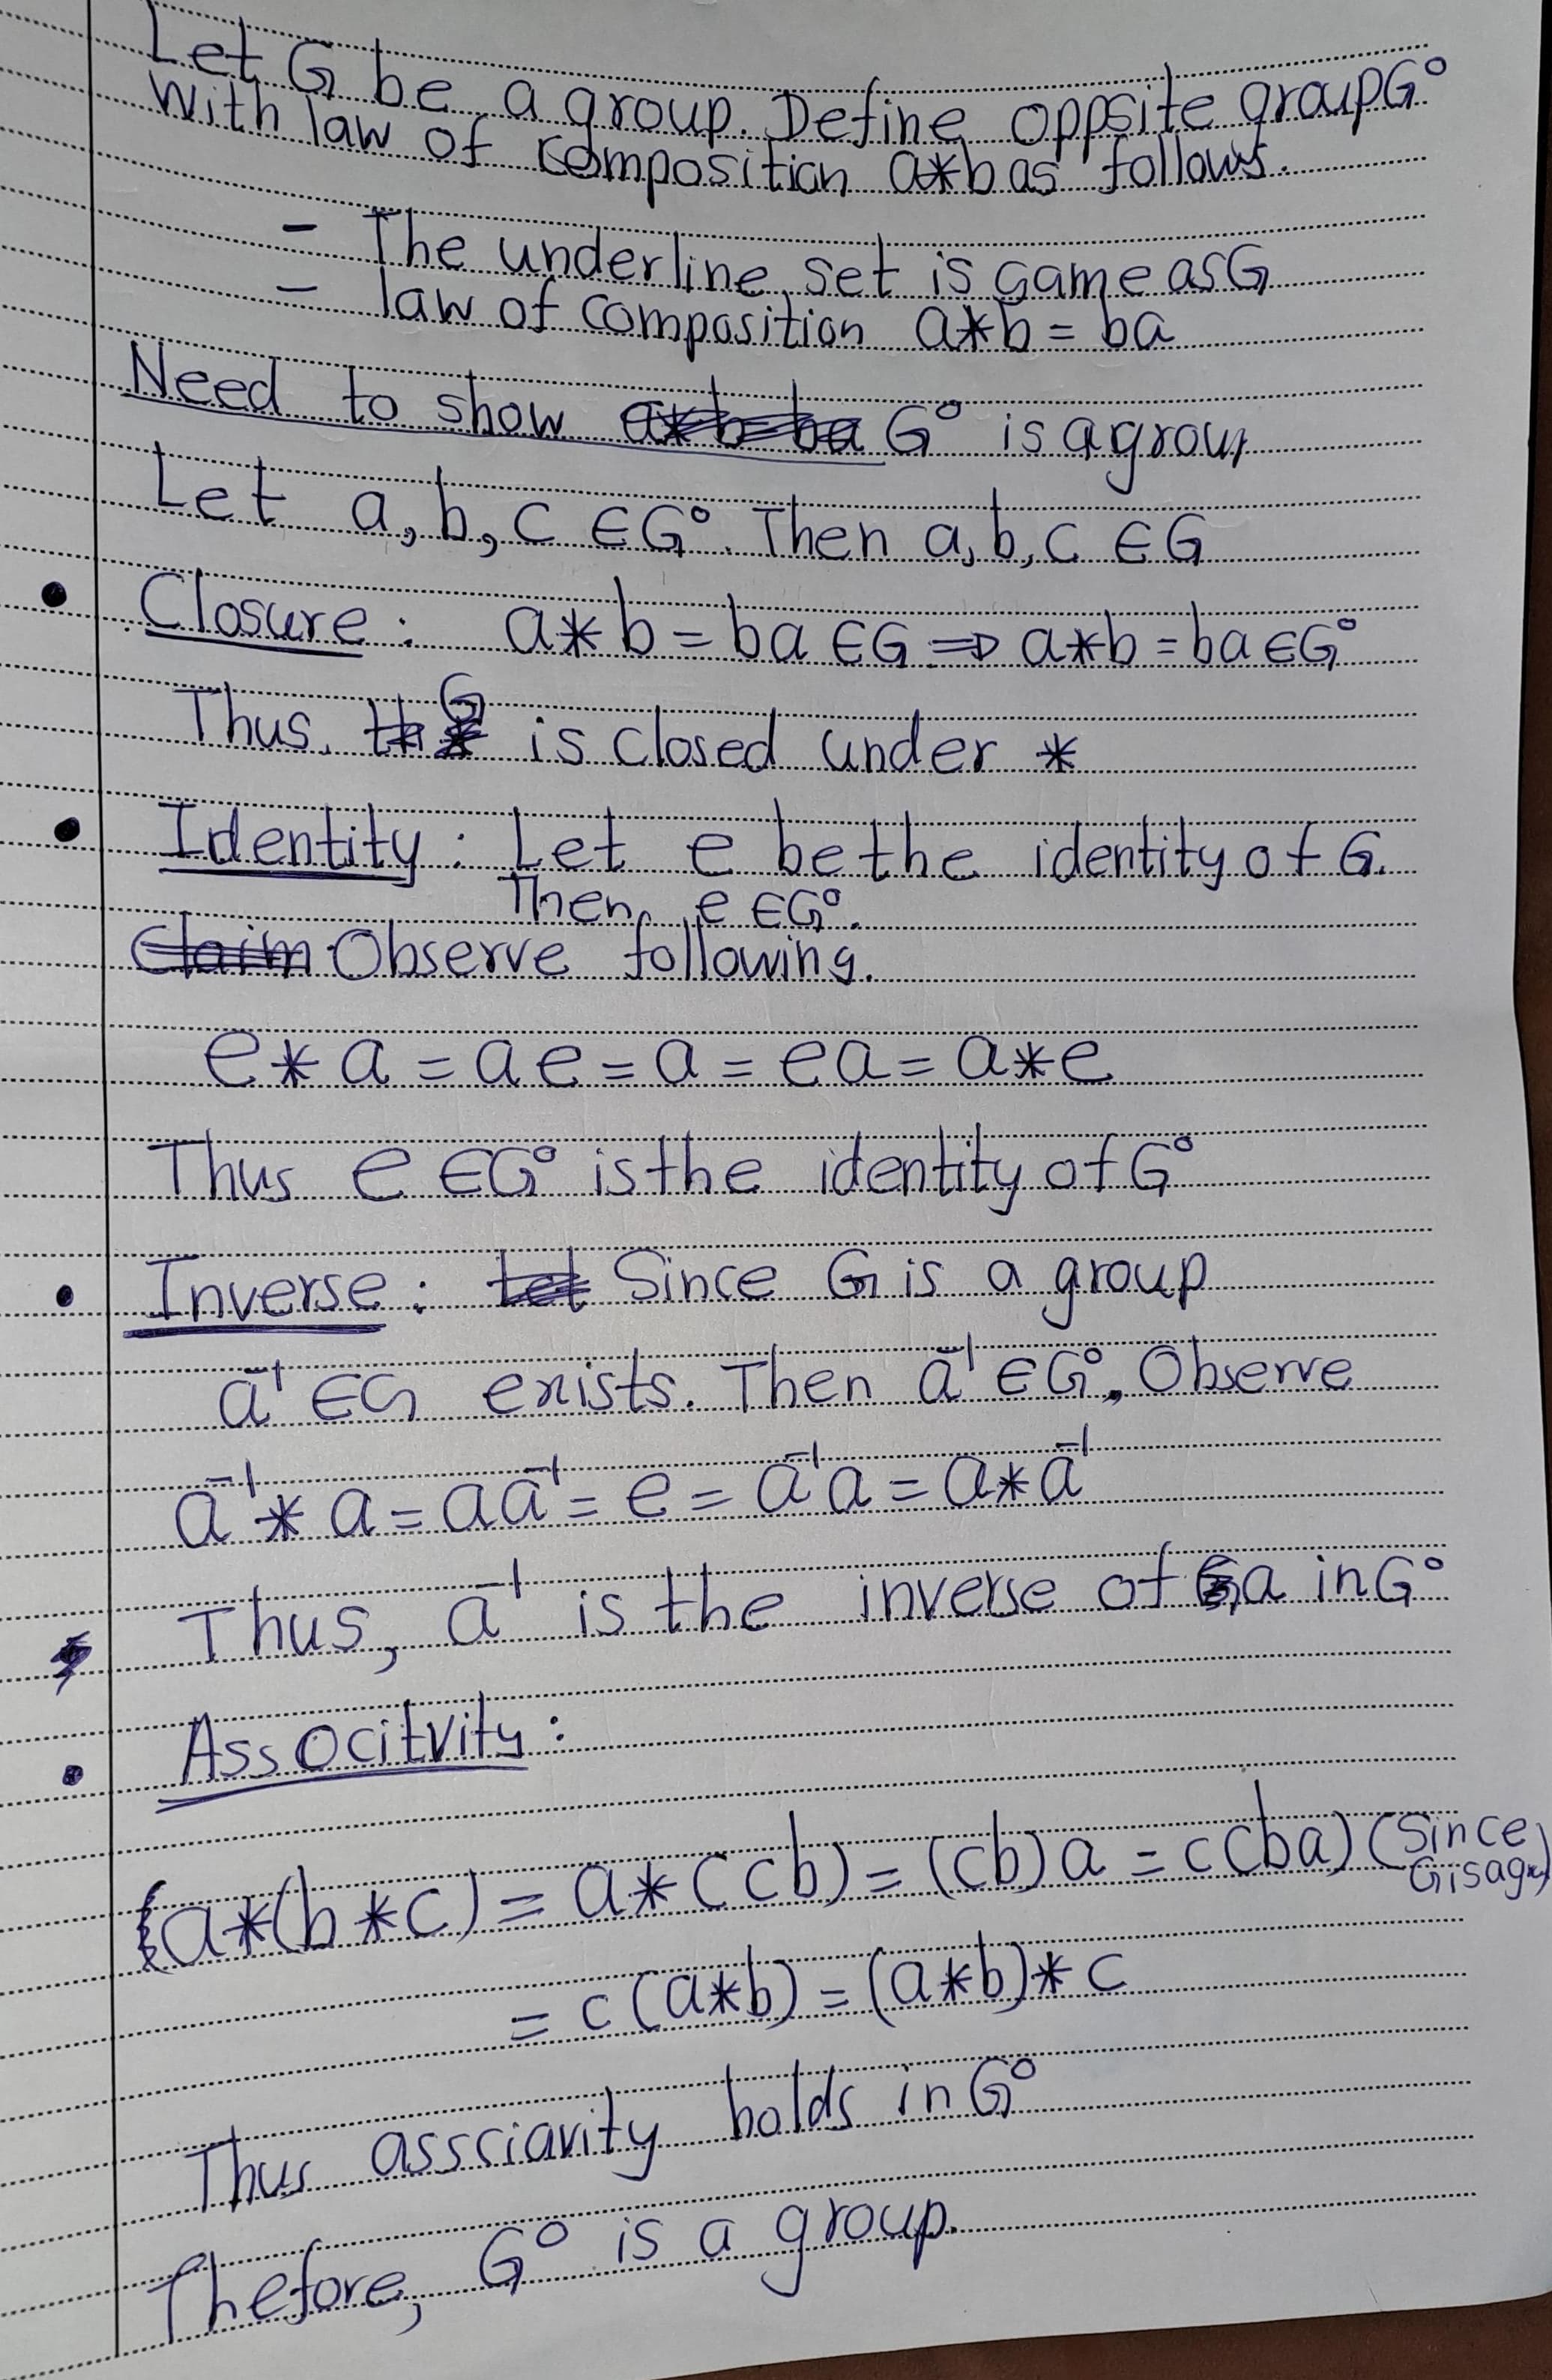 Let G be a group. Define oppsite group G°
with law of composition a*b as follows.
- The underline set is same as G
- law of composition a*b = ba
Need to show a*b=ba G° is a group
Let a, b, c ∈ G°. Then a, b, c ∈ G
• Closure: a*b = ba ∈ G ⇒ a*b = ba ∈ G°
Thus, G is closed under *
• Identity: Let e be the identity of G.
Then e ∈ G°.
Claim Observe following.
e * a = ae = a = ea = a*e
Thus e ∈ G° is the identity of G°
• Inverse: Let Since G is a group
a⁻¹ ∈ G exists. Then a⁻¹ ∈ G°. Observe
a⁻¹ * a = aa⁻¹ = e = a⁻¹a = a*a⁻¹
Thus, a⁻¹ is the inverse of a in G°
• Associtvity:
a*(b*c) = a*(cb) = (cb)a = c(ba) (Since
G is a gr)
= c(a*b) = (a*b)*c
Thus assciavity holds in G°
Thefore, G° is a group.